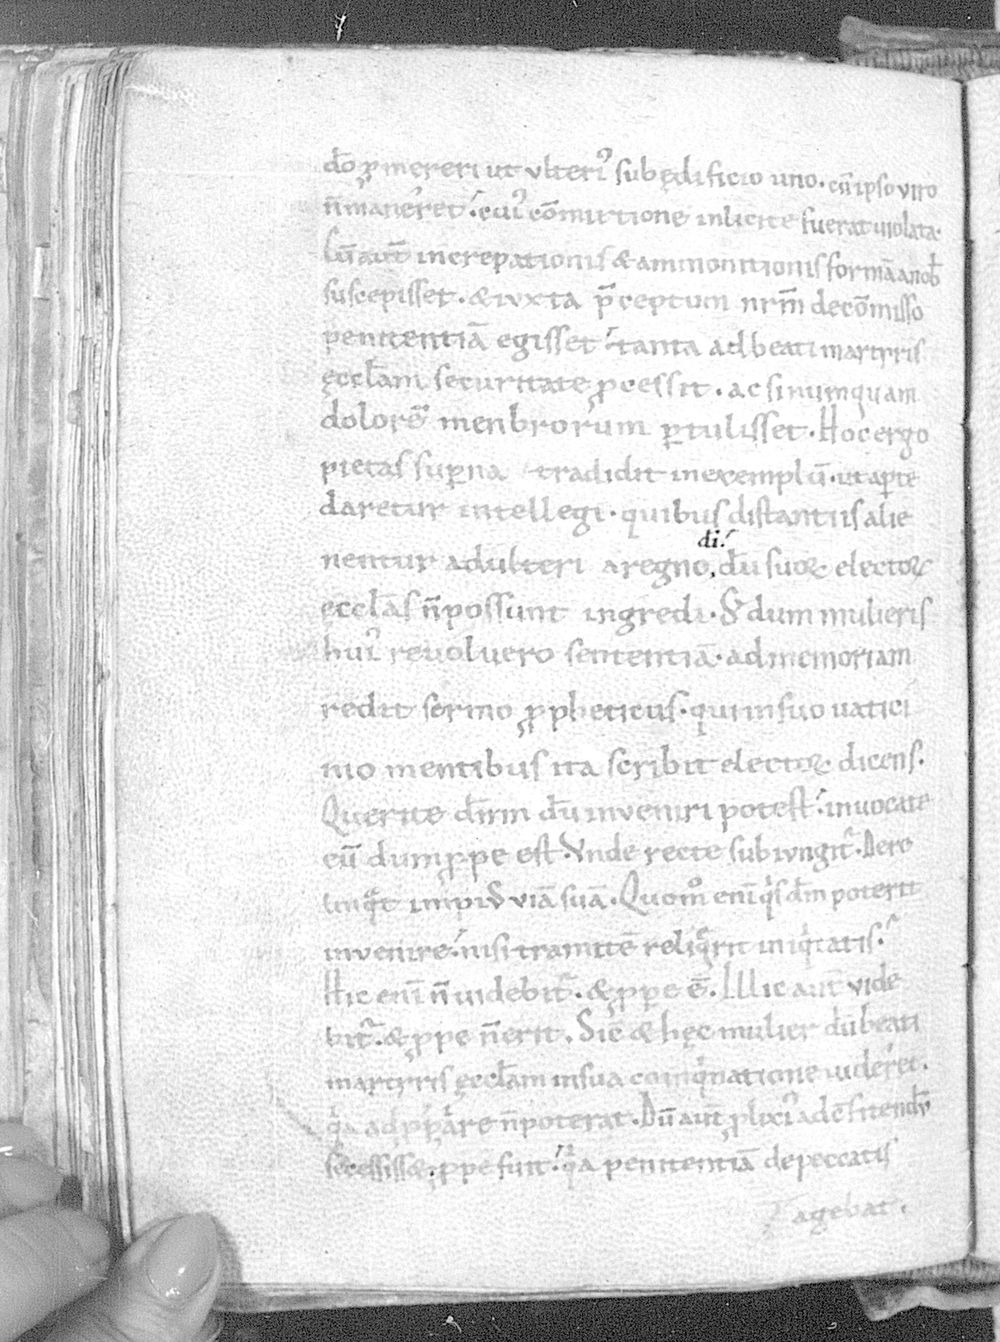 dō ꝓmereri ut ulteriꝰ sub ędificio uno. cū ipso uiro
n̄ maneret. cuiꝰ cōmixtione inlicite fuerat uiolata.
Cū aūt increpationis & ammonitionis formā a nob̄
suscepisset. & iuxta p̄ceptum nr̄m de cōmisso
penitentiā egisset. tanta ad beati martyris
ęccl̄am securitate ꝓcessit. ac si numquam
dolorē menbrorum ꝑtulisset. Hoc ergo
pietas suꝑna tradidit in exemplū. ut aꝑte
daretur intellegi. quibus distantiis alie
di.
nentur adulteri a regno, dū suoꝝ electoꝝ
ęccl̄as n̄ possunt ingredi. & dum mulieris
huiꝰ reuoluero sententiā. ad memoriam
redit sermo ꝓpheticus. qui in suo uatici
nio mentibus ita scribit electoꝝ dicens.
Querite dn̄m dū inueniri potest. inuocate
eū dum ꝓpe est. Vnde recte subiungit᷑. Dere
linq̄t impiꝰ uiā suā. Quom̊ enī q̄s dn̄m poterit
inuenire. nisi tramitē reliq̄rit iniq̄tatis.
Hic enī n̄ uidebit᷑. & ꝓpe ē. Illic aūt uide
bit᷑. & ꝓpe n̄ erit. Sic & hęc mulier dū beati
martyris ęccl̄am in sua coinq̄natione uideret.
q̄a adꝓp̄are n̄ poterat. Dū aūt ꝓlixiꝰ ad
secessiss&. ꝓpe fuit. q̄a penitentiā de peccatis
agebat.